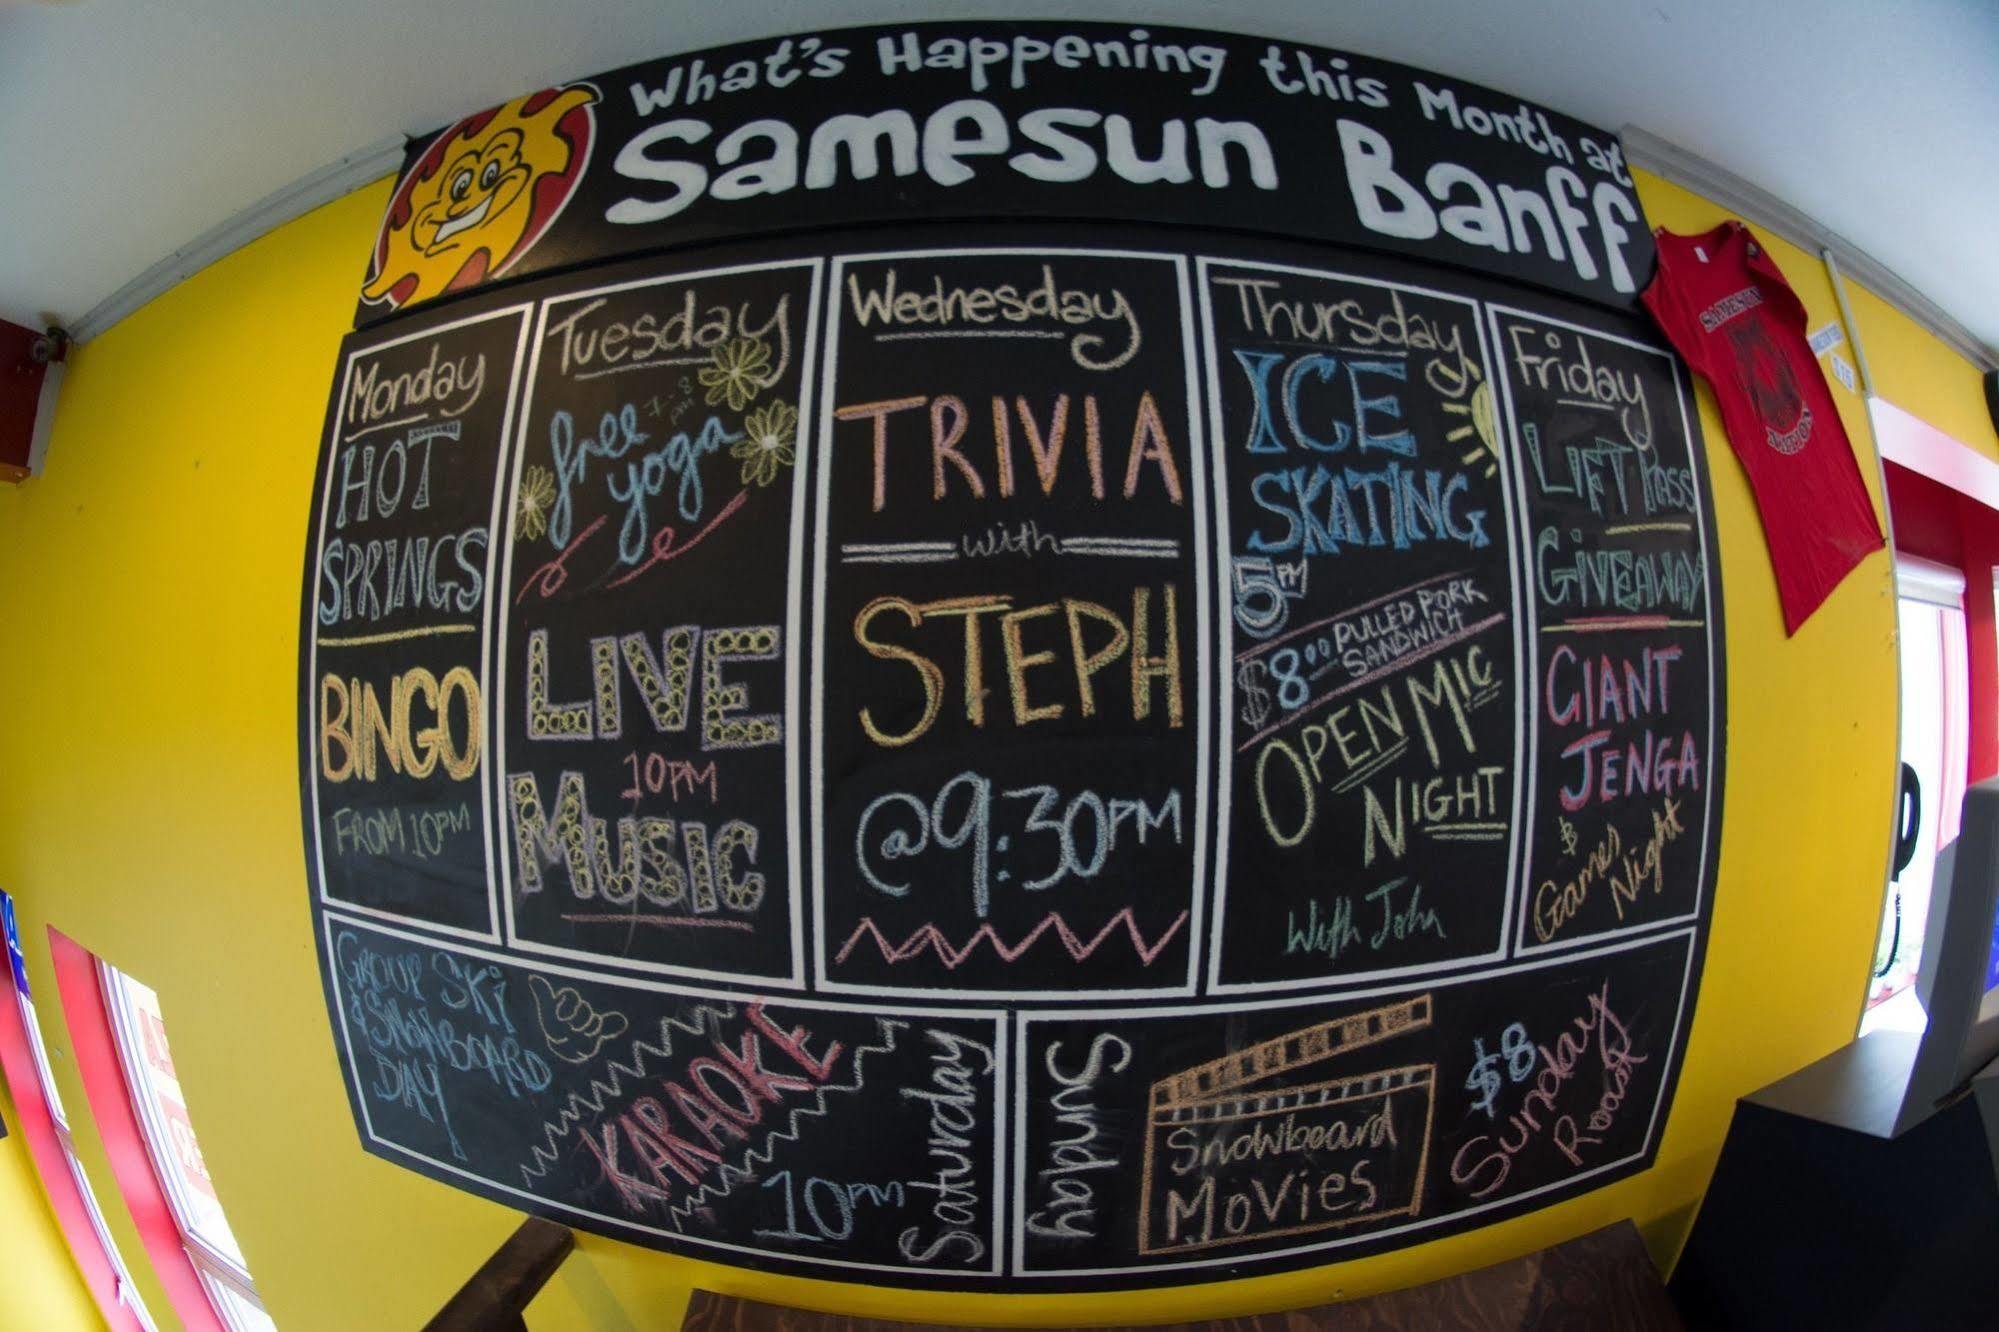 What's Happening this Month at
Samesun Banff
Monday
HOT
SPRINGS
BINGO
FROM 10PM
Tuesday
7-8
PM
free
yoga
LIVE
10PM
MUSIC
Wednesday
TRIVIA
with
STEPH
@9:30PM
Thursday
ICE
SKATING
5PM
$8.00 PULLED PORK
SANDWICH
OPEN MIC
NIGHT
With John
Friday
LIFT PASS
GIVEAWAY
GIANT
JENGA
&
Games
Night
GROUP SKI
& SNOWBOARD
DAY
KARAOKE
10PM
Saturday
Sunday
Snowboard
MOVIES
$8
Sunday
Roast
SAMESUN
$15